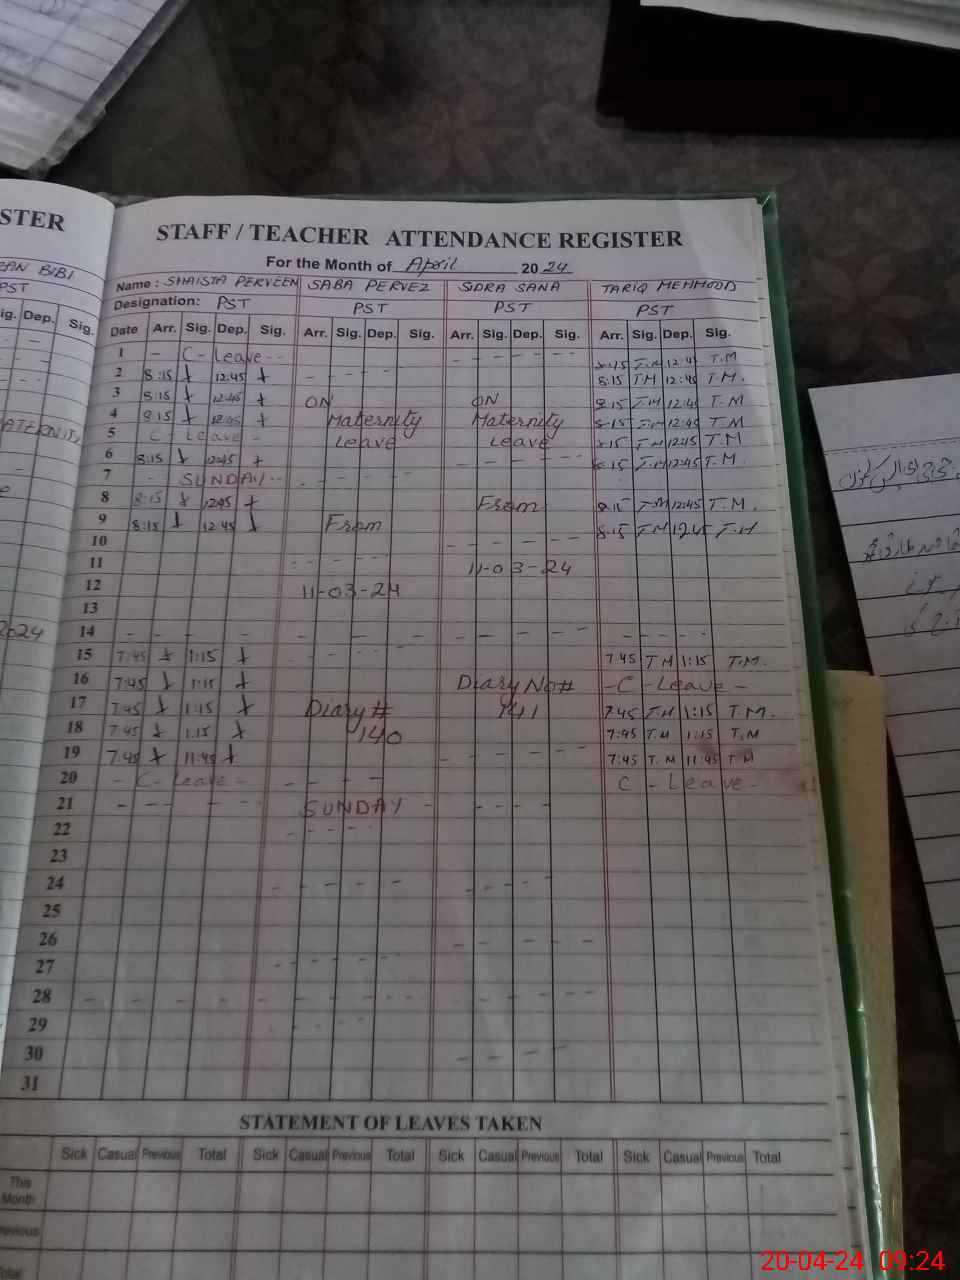 STER
BIBI
PST
ig. Dep. Sig.
2024
STAFF / TEACHER ATTENDANCE REGISTER
For the Month of April 2024
Name : SHAISTA PERVEEN SABA PERVEZ SIDRA SANA TARIQ MEHMOOD
Designation: PST PST PST PST
Date Arr. Sig. Dep. Sig. Arr. Sig. Dep. Sig. Arr. Sig. Dep. Sig. Arr. Sig. Dep. Sig.
1 - C - Leave - - 8:15 T.M 12:45 T.M
2 8:15 12:45 8:15 T.M 12:45 T.M.
3 8:15 12:45 ON ON 8:15 T.M 12:45 T.M
4 8:15 12:45 Maternity Maternity 8:15 T.M 12:45 T.M
5 C - Leave - Leave Leave 8:15 T.M 12:45 T.M
6 8:15 12:45 8:15 T.M 12:45 T.M.
7 - SUNDAY - -
8 8:15 12:45 From 8:15 T.M 12:45 T.M.
9 8:15 12:45 From 8:15 T.M 12:45 T.M
10
11 11-03-24
12 11-03-24
13
14
15 7:45 1:15 7:45 T.M 1:15 T.M.
16 7:45 1:15 Diary No# - C - Leave -
17 7:45 1:15 Diary # 141 7:45 T.M 1:15 T.M.
18 7:45 1:15 140 7:45 T.M 1:15 T.M
19 7:45 11:45 7:45 T.M 11:45 T.M
20 - C - Leave - C - Leave -
21 SUNDAY
22
23
24
25
26
27
28
29
30
31
STATEMENT OF LEAVES TAKEN
Sick Casual Previous Total Sick Casual Previous Total Sick Casual Previous Total Sick Casual Previous Total
This Month
Previous
Total
20-04-24 09:24